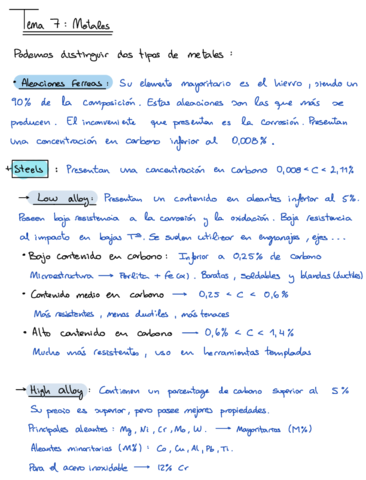 Tema 7: Metales
Podemos distinguir dos tipos de metales :
• Aleaciones Ferreas : Su elemento mayoritario es el hierro, siendo un
90% de la composición. Estas aleaciones son las que más se
producen. El inconveniente que presentan es la corrosión. Presentan
una concentración en carbono inferior al 0,008 %.
Steels : Presentan una concentración en carbono 0,008 < C < 2,11%
→ Low alloy : Presentan un contenido en aleantes inferior al 5%.
Poseen baja resistencia a la corrosión y la oxidación. Baja resistencia
al impacto en bajas Tª. Se suelen utilizar en engranajes, ejes ...
• Bajo contenido en carbono : Inferior a 0,25% de carbono
Microestructura → Perlita + Fe (α). Baratos, soldables y blandos (ductiles)
• Contenido medio en carbono → 0,25 < C < 0,6%
Más resistentes, menos ductiles, más tenaces
• Alto contenido en carbono → 0,6% < C < 1,4%
Mucho más resistentes, uso en herramientas templadas
→ High alloy : Contienen un porcentage de carbono superior al 5%
Su precio es superior, pero posee mejores propiedades.
Principales aleantes : Mg, Ni, Cr, Mo, W. → Mayoritarios (M%)
Aleantes minoritarios (M%) : Co, Cu, Al, Pb, Ti.
Para el acero inoxidable → 12% Cr